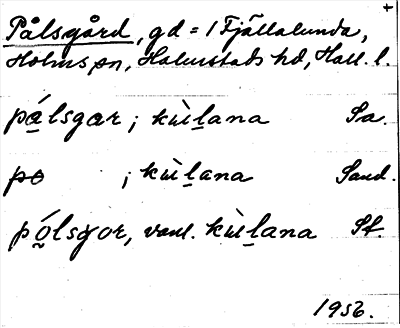 Pålsgård, gd = 1 Fjällalunda,
Holms sn, Halmstads hd, Hall. l.
pá̱lsgar; kùḻana Sa.
po ; kùḻana Sand.
pó̰lsgor, vanl. kùḻana Sf.
1956.